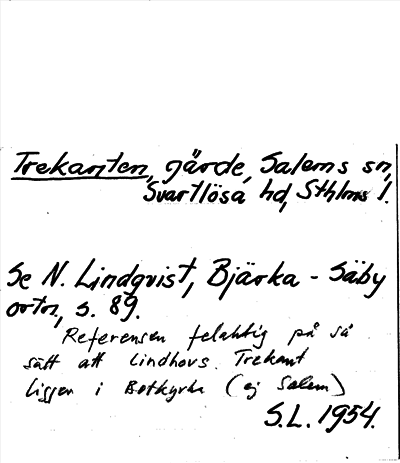 Trekanten, gärde, Salems sn,
Svartlösa hd, Sthlms l.
Se N. Lindqvist, Bjärka - Säby
ortn, s. 89.
Referensen felaktig på så
sätt att Lindhovs Trekant
ligger i Botkyrka (ej Salem)
S.L. 1954.